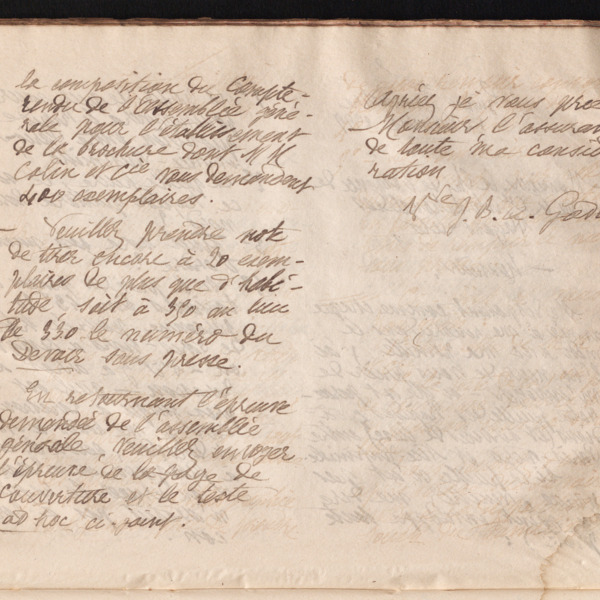 la composition du Compte-
rendu de l'Assemblée géné-
rale pour l'établissement
de la brochure dont MM
Colin et Cie nous demandent
400 exemplaires.
— Veuillez prendre note
de tirer encore à 20 exem-
plaires de plus que d'habi-
tude, soit à 350 au lieu
de 330 le numéro du
Devoir sous presse.
En retournant l'épreuve
demandée de l'assemblée
générale, veuillez envoyer
l'épreuve de la page de
couverture et le texte
ad hoc ci-joint.
Agréez je vous
Monsieur l'assuran
de toute ma consid
ration
Vve J. B. A. God